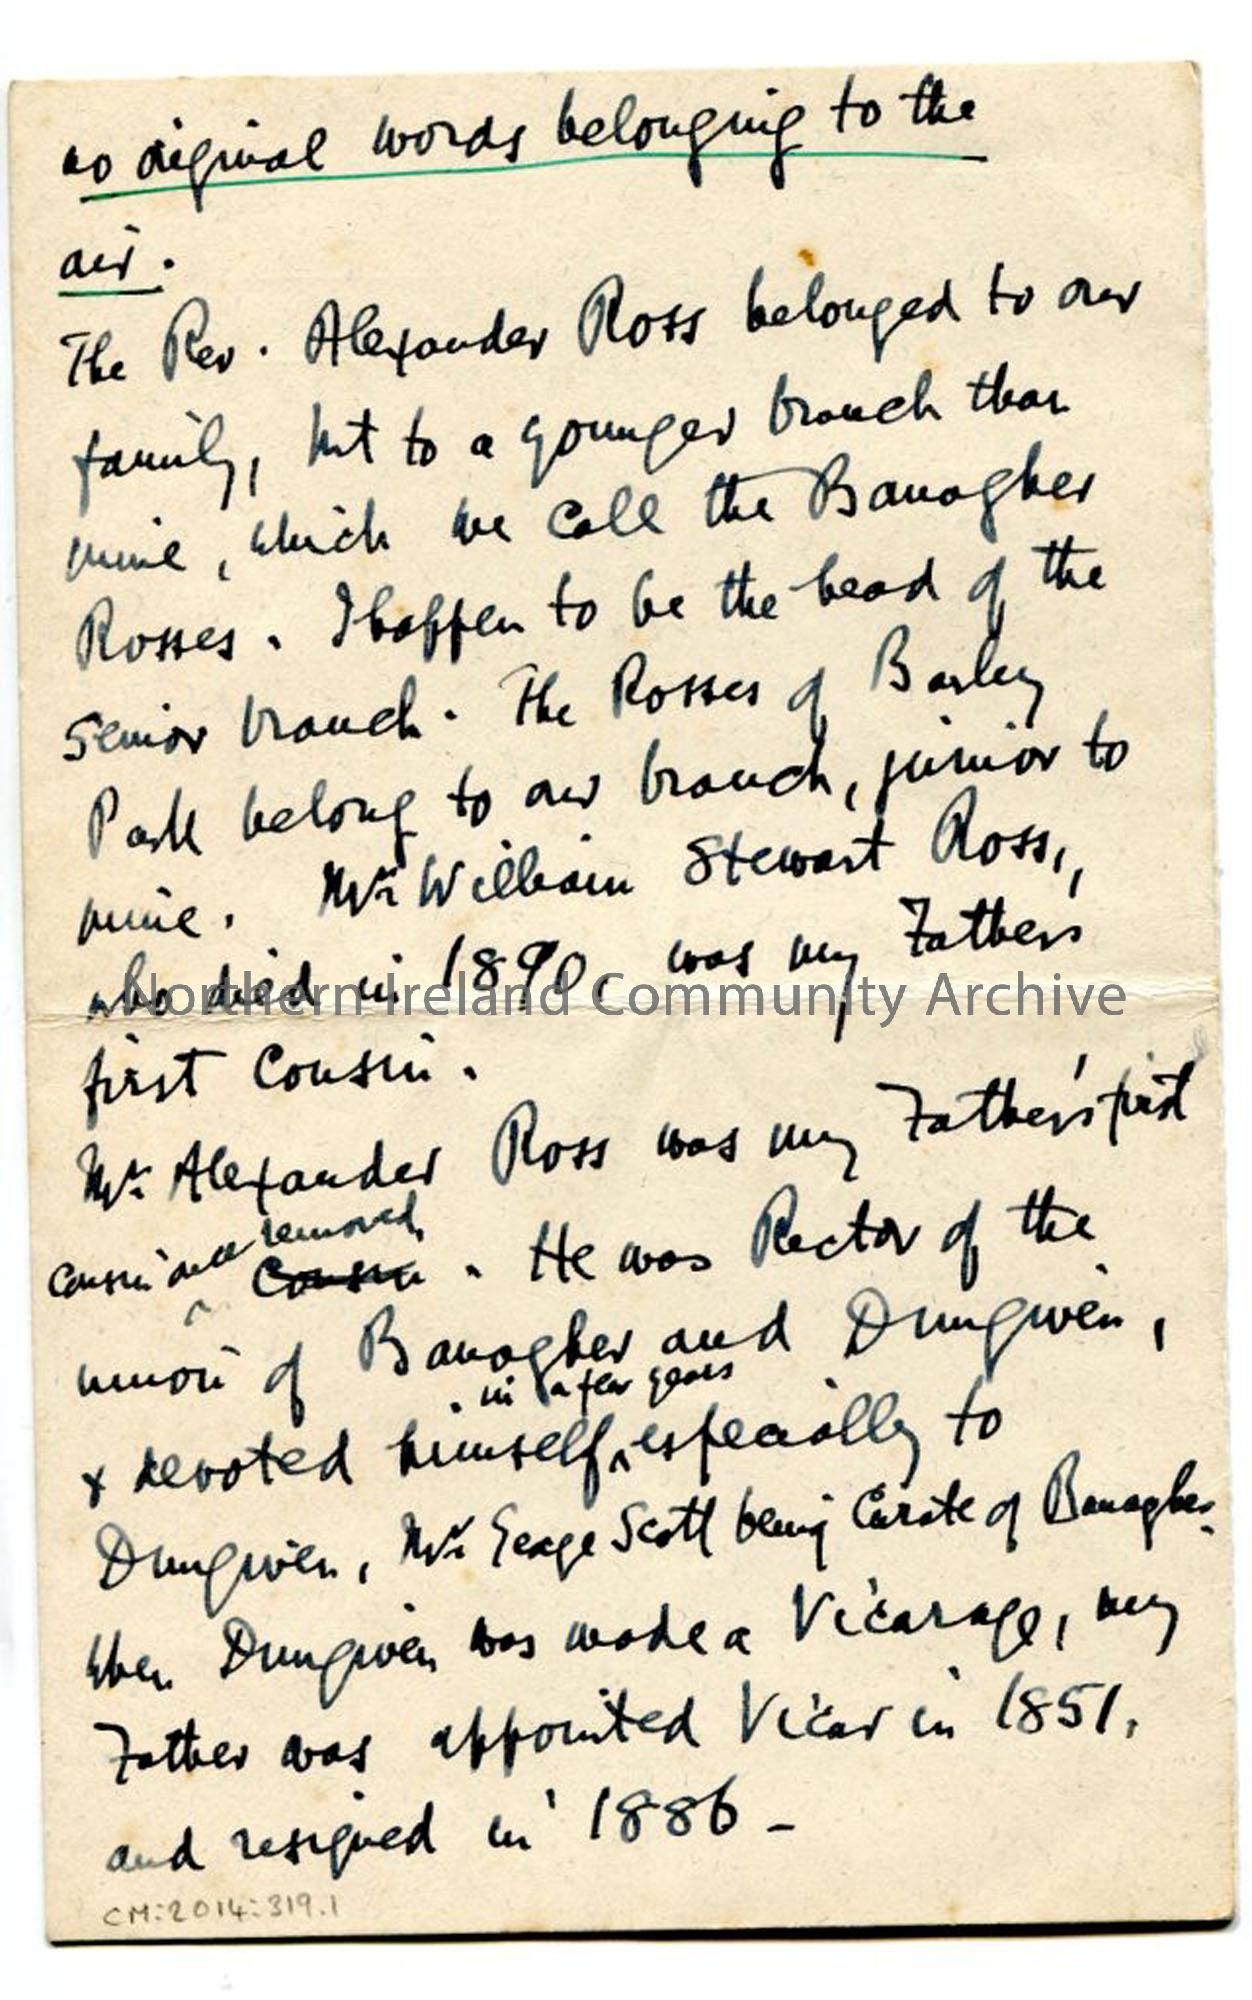 no original words belonging to the
air.
The Rev. Alexander Ross belonged to our
family, but to a younger branch than
mine, which we call the Banagher
Rosses. I happen to be the head of the
Senior branch. The Rosses of Barley
Park belong to our branch, junior to
mine. Mr. William Stewart Ross,
who died in 1890, was my Father's
first Cousin.
Mr. Alexander Ross was my Father's first
Cousin once removed Cousin. He was Rector of the
union of Banagher and Dungiven,
in a few years
& devoted himself, especially to
Dungiven, Mr. George Scott being Curate of Banagher.
When Dungiven was made a Vicarage, my
Father was appointed Vicar in 1851,
and resigned in 1886 -
CM:2014:319.1
Northern Ireland Community Archive